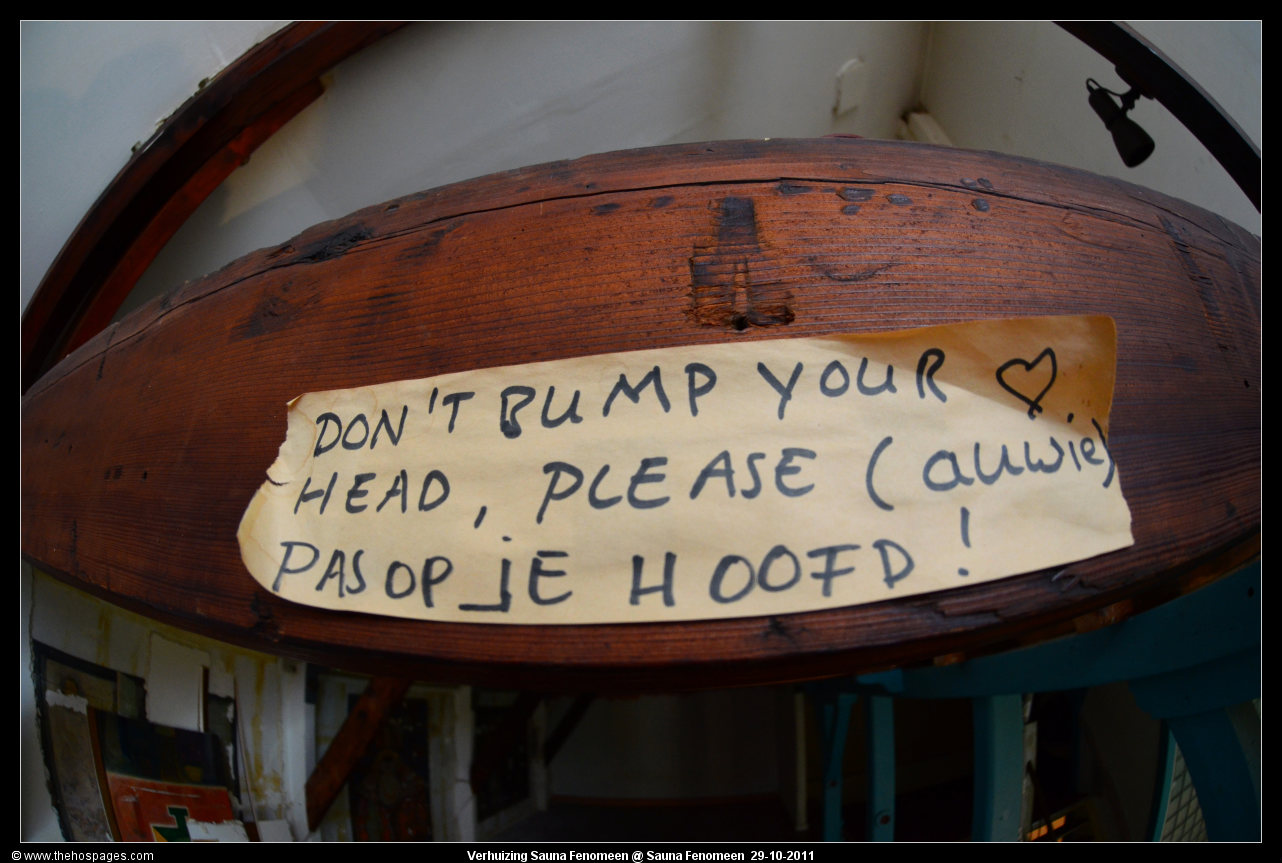 DON'T BUMP YOUR ♡
HEAD, PLEASE (auwie)
PAS OP JE HOOFD!
© www.thehospages.com
Verhuizing Sauna Fenomeen @ Sauna Fenomeen 29-10-2011